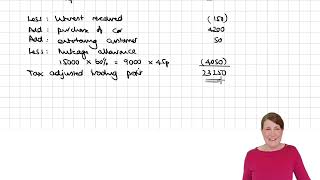 Less: Interest received (150)
Add: purchase of car 4200
Add: entertaining customer 50
Less: Mileage allowance
15000 x 60% = 9000 x 45p (4050)
Tax adjusted trading profit 23250